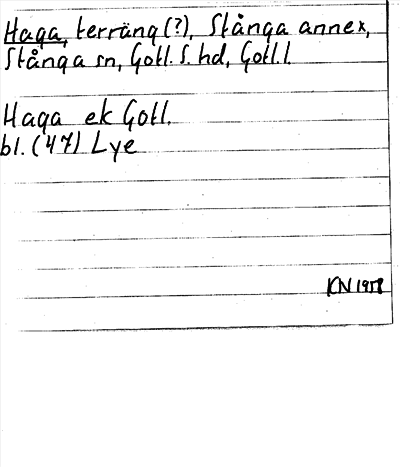 Haga, terräng (?), Stånga annex,
Stånga sn, Gotl. S. hd, Gotl. l.
Haga ek Gotl.
bl. (47) Lye
KN 1958